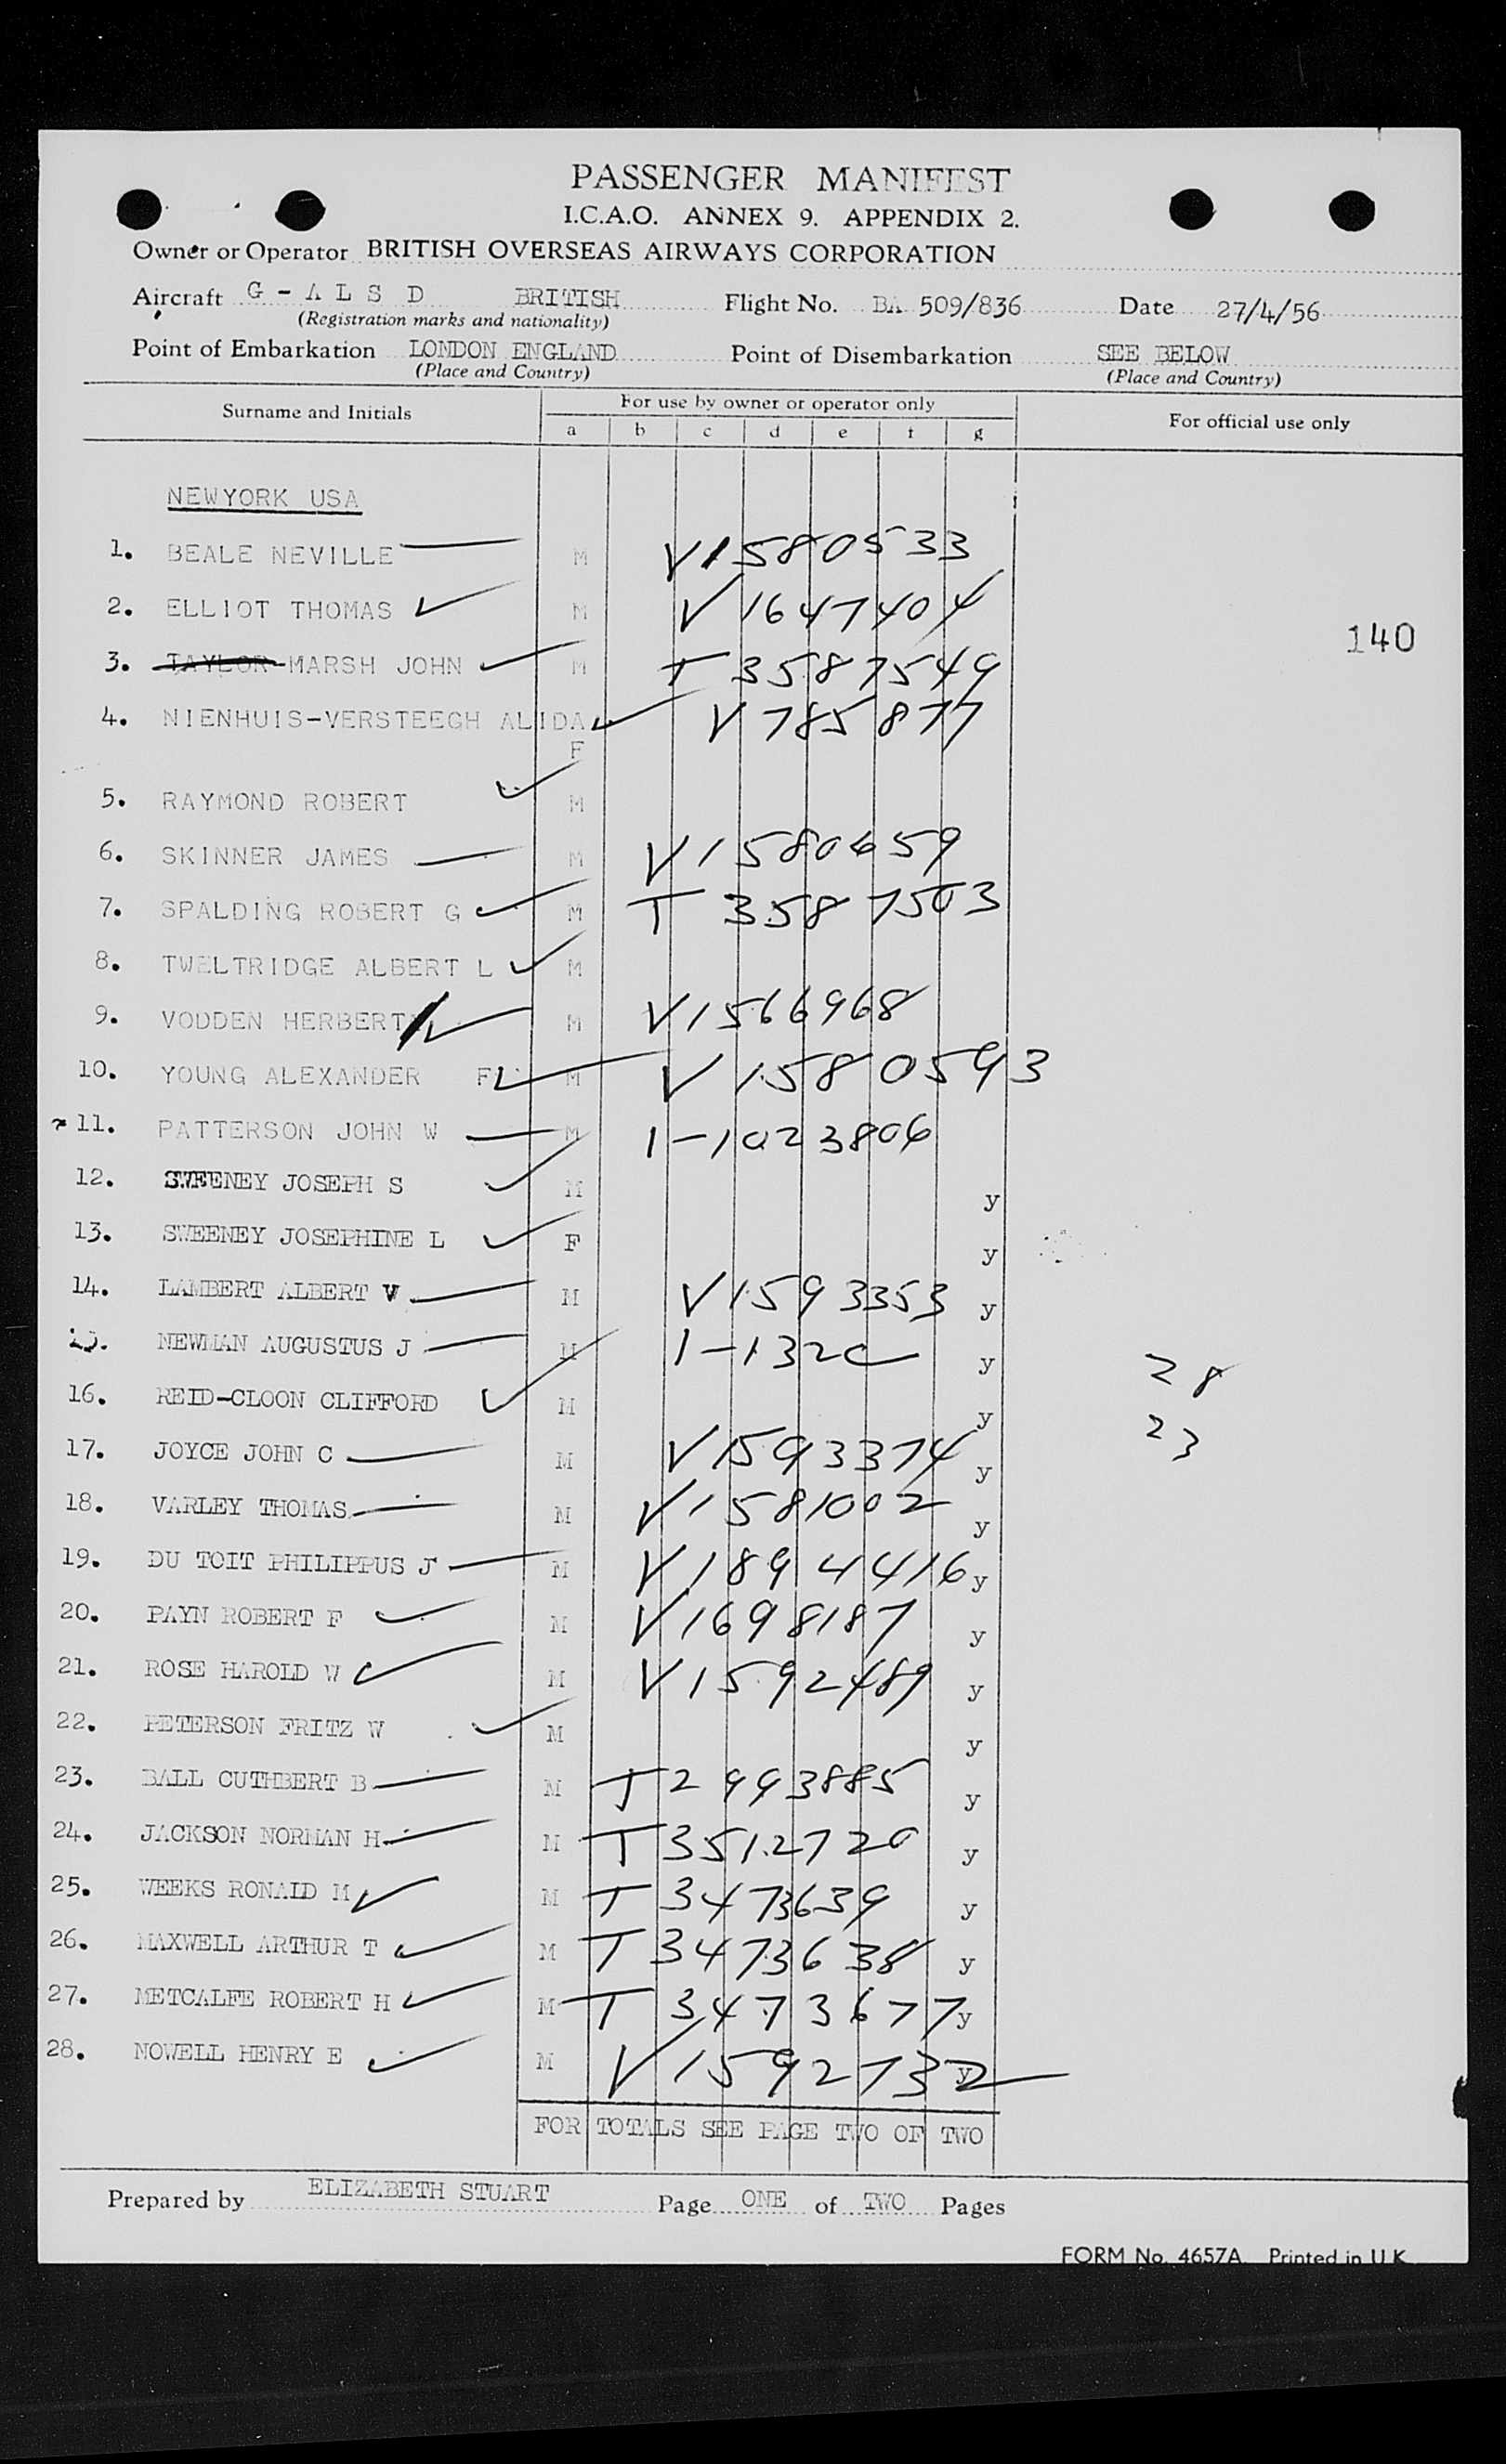 PASSENGER MANIFEST
I.C.A.O. ANNEX 9. APPENDIX 2.
Owner or Operator BRITISH OVERSEAS AIRWAYS CORPORATION
Aircraft G - A L S D BRITISH Flight No. BA 509/836 Date 27/4/56
(Registration marks and nationality)
Point of Embarkation LONDON ENGLAND Point of Disembarkation SEE BELOW
(Place and Country) (Place and Country)
Surname and Initials For use by owner or operator only For official use only
a b c d e f g
NEWYORK USA
1. BEALE NEVILLE M V1580533
2. ELLIOT THOMAS M V1647404
140
3. TAYLOR-MARSH JOHN M T 3587549
4. NIENHUIS-VERSTEEGH ALIDA V785877
F
5. RAYMOND ROBERT M
6. SKINNER JAMES M V1580659
7. SPALDING ROBERT G M T 3587503
8. TWELTRIDGE ALBERT L M
9. VODDEN HERBERT M V1566968
10. YOUNG ALEXANDER F M V1580593
11. PATTERSON JOHN W M 1-1023806
12. SWEENEY JOSEPH S M y
13. SWEENEY JOSEPHINE L F y
14. LAMBERT ALBERT V M V1593353 y
15. NEWMAN AUGUSTUS J M y
28
16. REID-CLOON CLIFFORD M y
23
17. JOYCE JOHN C M V1593374 y
18. VARLEY THOMAS M V1581002 y
19. DU TOIT PHILIPPUS J M V1894416 y
20. PAYN ROBERT F M V1698187 y
21. ROSE HAROLD W M V1592489 y
22. PETERSON FRITZ W M y
23. BALL CUTHBERT B M T2993885 y
24. JACKSON NORMAN H M T3512720 y
25. WEEKS RONALD M M T3473639 y
26. MAXWELL ARTHUR T M T3473638 y
27. METCALFE ROBERT H M T3473677 y
28. NOWELL HENRY E M V1592732 y
FOR TOTALS SEE PAGE TWO OF TWO
Prepared by ELIZABETH STUART Page ONE of TWO Pages
FORM No. 4657A Printed in U.K.